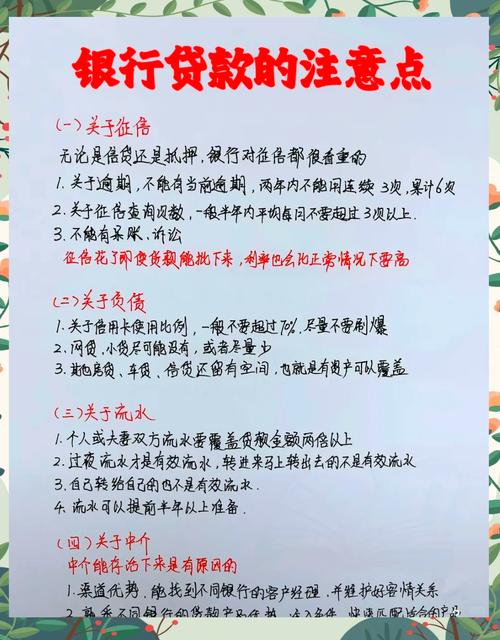 银行贷款的注意点
(一)关于征信
无论是信贷还是抵押,银行对征信都很看重的
1. 关于逾期,不能有当前逾期,两年内不能用连续3次,累计6次
2. 关于征信查询次数,一般半年内平均每月不要超过3次以上.
3. 不能有呆账、诉讼
征信花了即使贷款能批下来,利率也会比正常情况下要高
(二)关于负债
1. 关于信用卡使用比例,一般不要超过70%.尽量不要刷爆
2. 网贷,小贷尽可能没有,或者尽量少
3. 其他房贷、车贷、信贷还留有空间,也就是有资产可以覆盖
(三)关于流水
1. 个人或夫妻双方流水要覆盖贷款金额两倍以上
2. 过夜流水才是有效流水,转进来马上转出去的不是有效流水
3. 自己转给自己的也不是有效流水.
4. 流水可以提前半年以上准备.
(四)关于中介
中介能存活下来是有原因的
1. 渠道优势,能找到不同银行的客户经理,并维护好客情关系
2. 熟悉不同银行的贷款产品